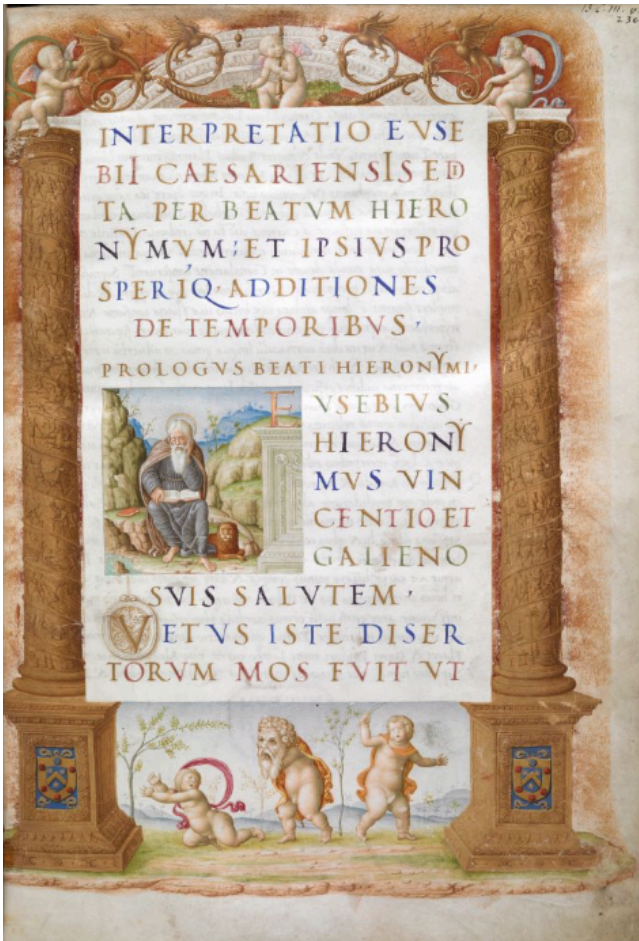 INTERPRETATIO EVSE
BII CAESARIENSIS EDI
TA PER BEATVM HIERO
NYMVM; ET IPSIVS PRO
SPERIQ, ADDITIONES
DE TEMPORIBVS,
PROLOGVS BEATI HIERONYMI,
EVSEBIVS
HIERONY
MVS VIN
CENTIO ET
GALIENO
SVIS SALVTEM,
VETVS ISTE DISER
TORVM MOS FVIT VT